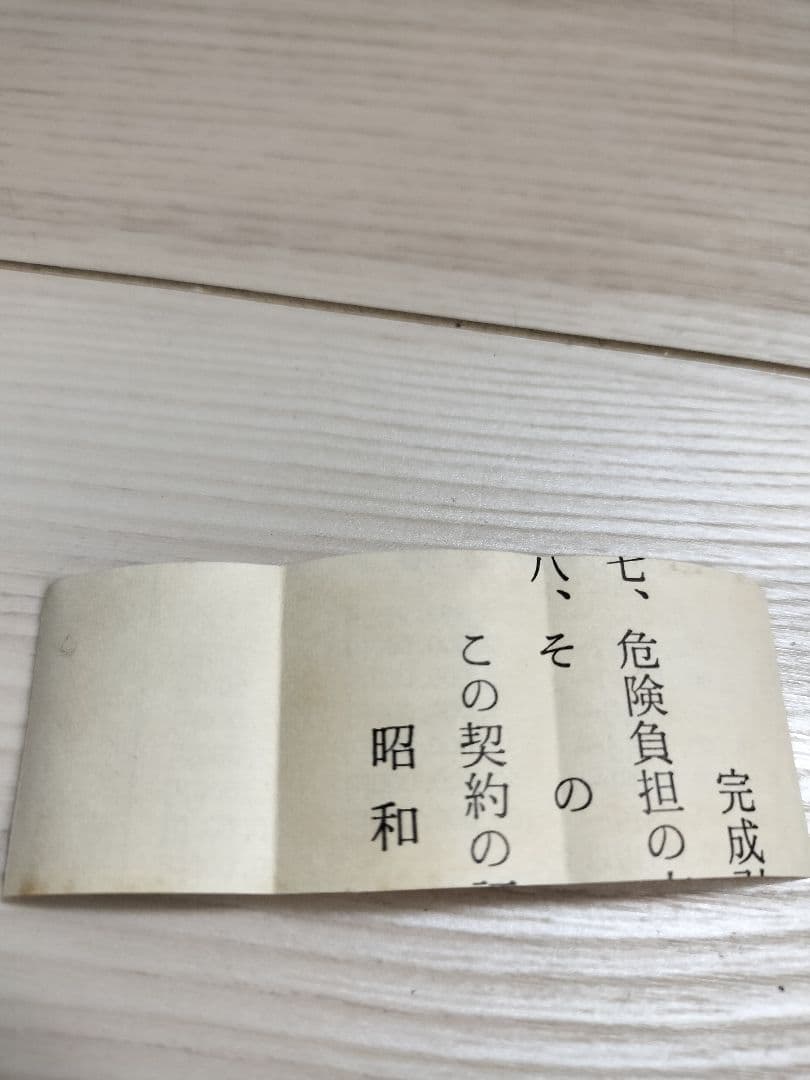 完成
七、危険負担の
八、その
この契約の
昭和